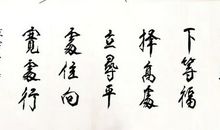 下等福
择高處
立尋平
處住向
寬處行